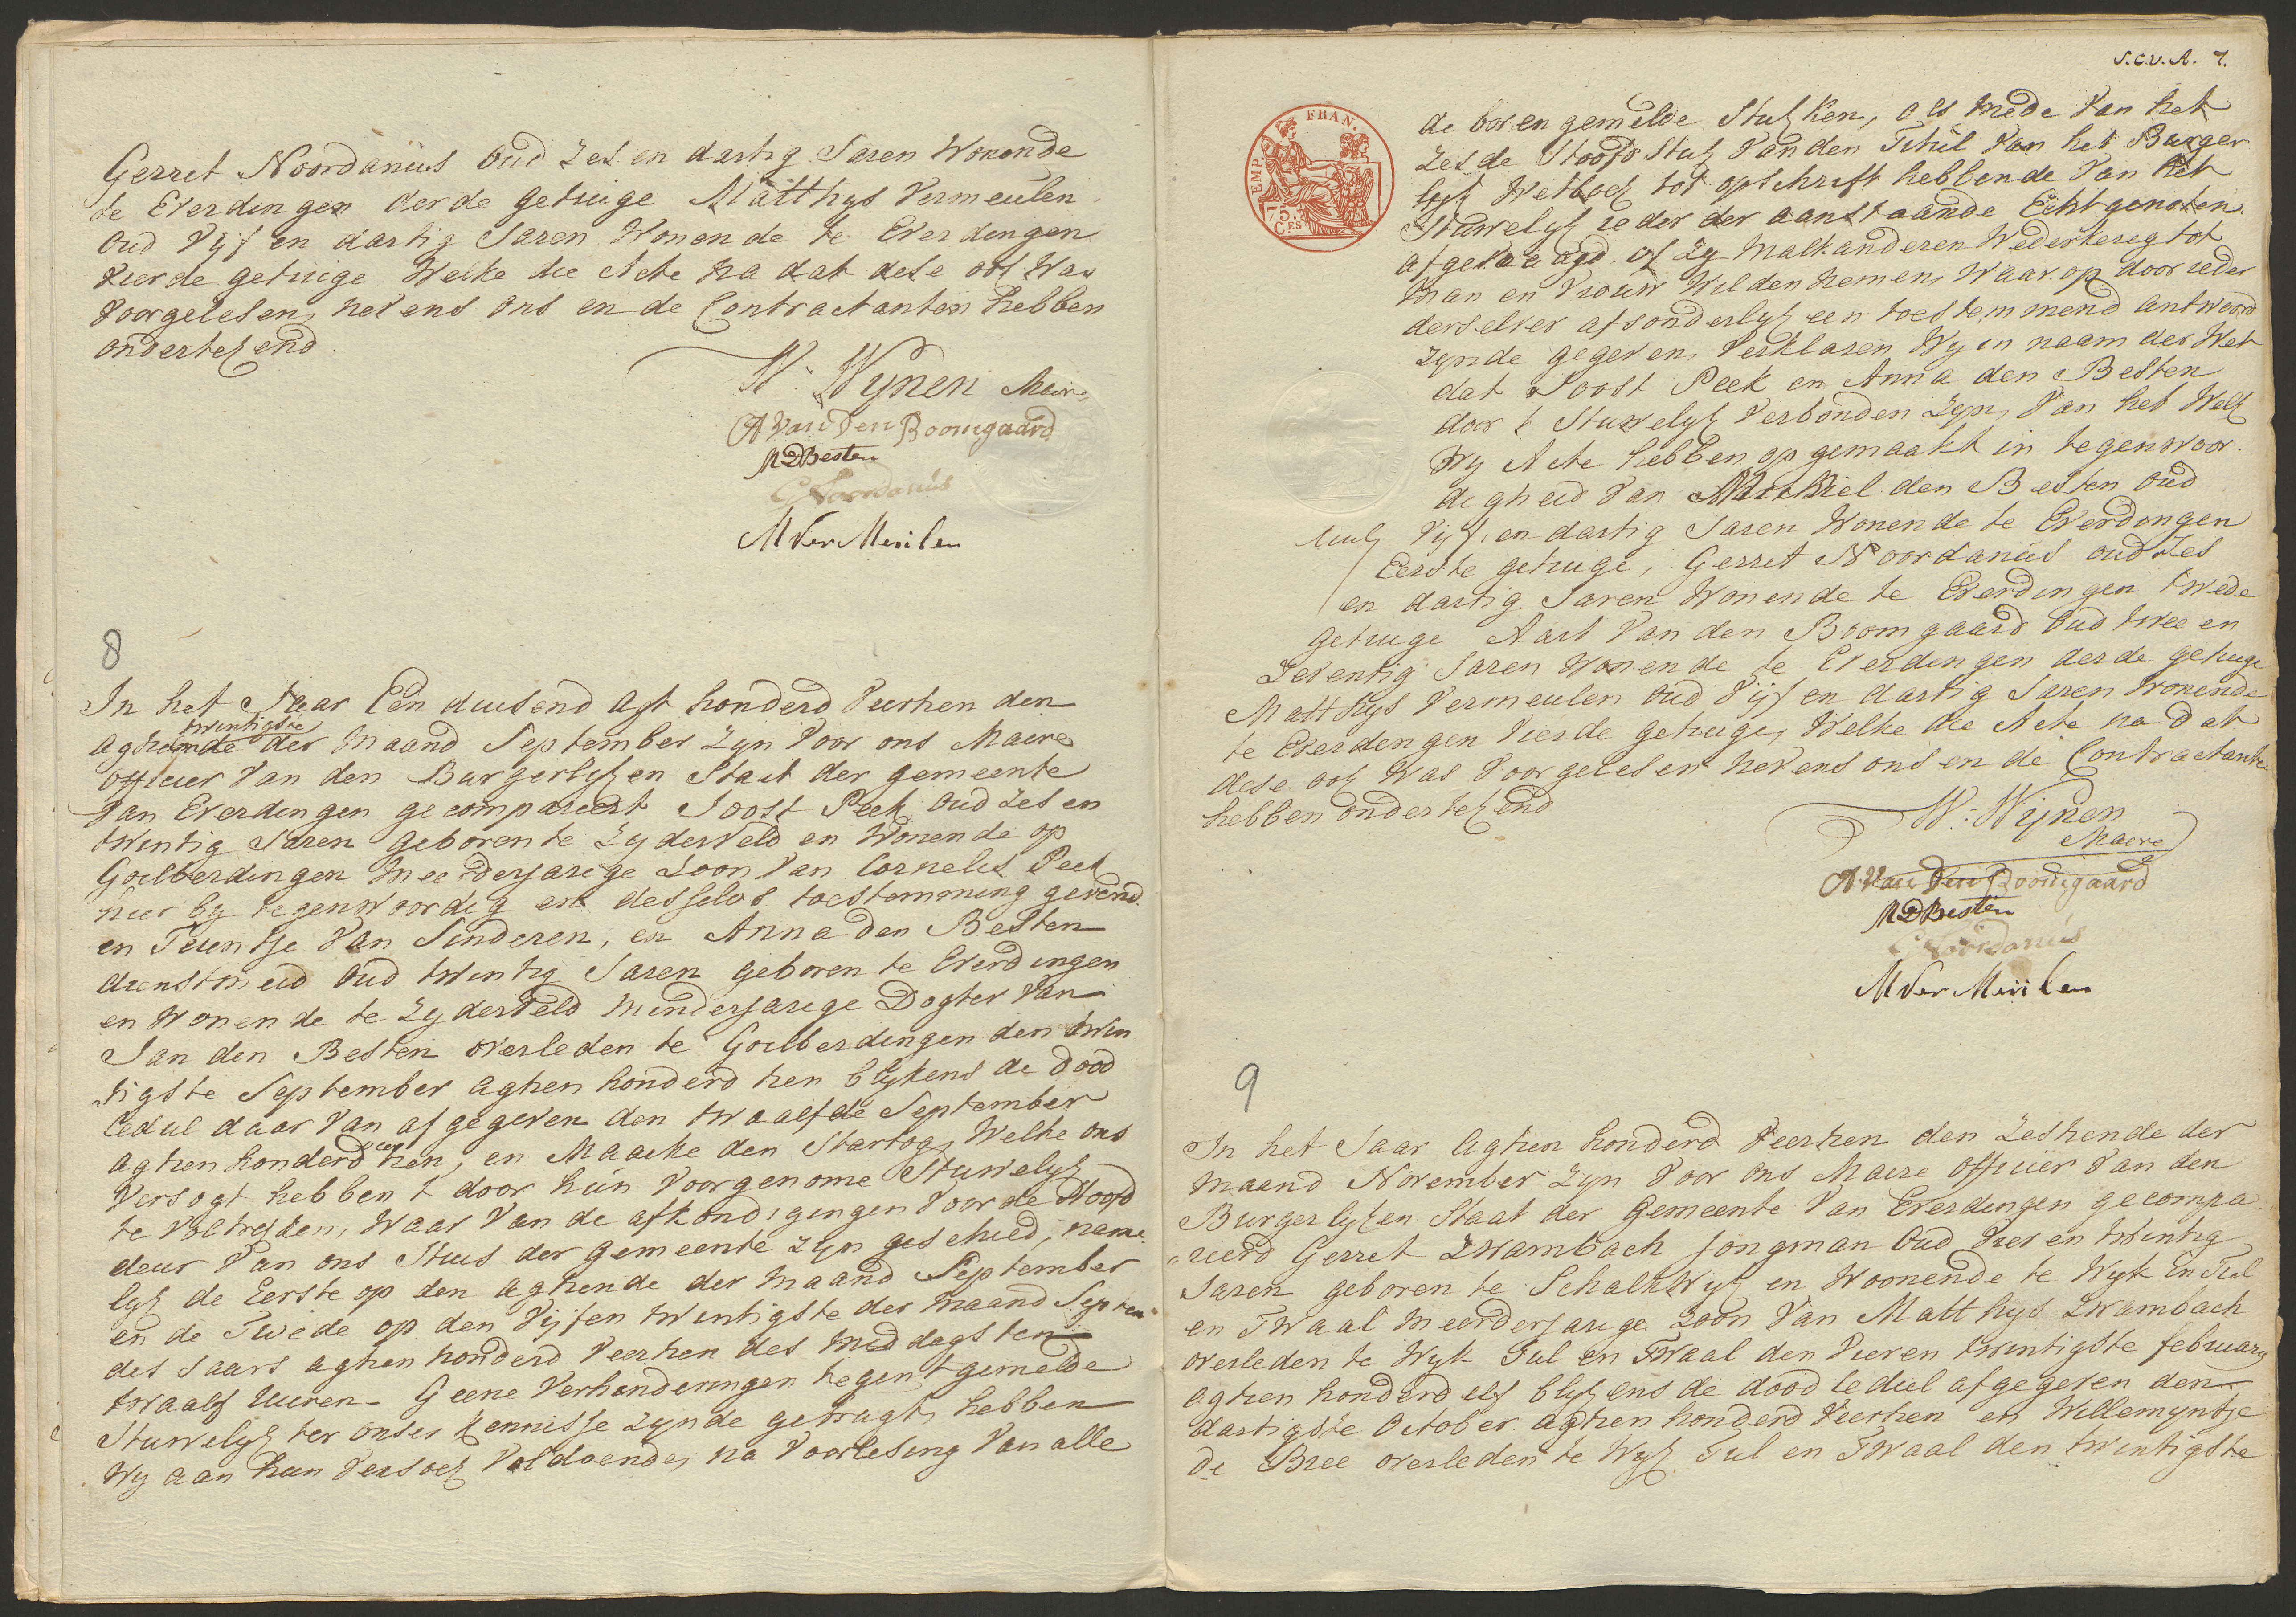 Gerret Noordanüs oud zes en dartig Jaren Wonende
te Everdingen derde getuige Matthys Vermeulen
oud Vijf en dartig Jaren Wonende te Everdingen
Vierde getuige Welke die Acte na dat dese ook was
Voorgelesen, nevens ons en de Contractanten hebben
ondertekend
W: Wynen Maire
A Van Den Boomgaard
M D Besten
G Noordanüs
M Ver Meulen
8
In het Jaar Een duisend agt honderd Veertien den
twintigste
agtiende der Maand September zyn Voor ons Maire
officier Van den Burgerlyken Staat der gemeente
Van Everdingen gecompareert Joost Peek oud zes en
twintig Jaren geboren te Zyderveld en Wonende op
Goilberdingen Meerderjarige zoon Van Cornelis Peek
hier by tegenwoordig en desselvs toestemming gevend
en Teuntje Van Sinderen, en Anna den Besten
dienstmeid oud twintig Jaren geboren te Everdingen
en Wonende te Zyderveld Minderjarige Dogter Van
Jan den Besten overleden te Goilberdingen den twin
tigste September agtien honderd tien blykens de dood
cedul daar Van afgegeven den twaalfde September
agtien honderd tien, en Maacke den Hartog, Welke ons
Versogt hebben t door hün Voorgenome Huwelyk
te Voltrekken, Waar Van de afkondigingen Voor de Hoofd
deur Van ons Huis der gemeente zyn geschied, name
lyk de Eerste op den agtiende der Maand September
en de Twede op den Vijfen twintigste der Maand Septem
des Jaars agtien honderd Veertien des Middags ten
twaalf uuren. Geene Verhinderingen tegen t gemelde
Huwelyk ter onser kennisse zynde gebragt, hebben
Wy aan hun Versoek Voldoende, na Voorlesing Van alle
S.C.V.A. 7.
EMP. FRAN.
75.
CES
de boven gemelde Stukken, als mede Van het
Zesde Hoofd Stuk Van den Titul Van het Burger
lyk Wetboek tot opschrift hebbende Van het
Huwelyk ieder der aanstaande Echtgenoten
afgevraagd of zy Malkanderen Wederkerig tot
Man en Vrouw Wilden nemen, Waar op door ieder
derselver afsonderlyk een toestemmend antwoord
zynde gegeven, Verklaren Wy in naam der Wet
dat Joost Peek en Anna den Besten
door t Huwelyk Verbonden zyn, Van het Welk
Wy Acte hebben op gemaakt in tegenwoor
digheid Van Machiel den Besten oud
Vijf en dartig Jaren Wonende te Everdingen
Eerste getuige, Gerret Noordanüs oud Zes
en dartig Jaren Wonende te Everdingen twede
getuige Aart Van den Boomgaard oud twee en
Zeventig Jaren Wonende te Everdingen derde getuige
Matthys Vermeulen oud Vijf en dartig Jaren Wonende
te Everdingen Vierde getuige, Welke die Acte na dat
dese ook Was Voorgelesen nevens ons en de Contractante
hebben ondertekend
W: Wijnen
Maire
A Van Den Boomgaard
M D Besten
G Noordanüs
M Ver Meulen
9
In het Jaar agtien honderd Veertien den Zestiende der
Maand November zyn Voor ons Maire officier Van den
Burgerlyken Staat der Gemeente Van Everdingen gecompa
reerd Gerret Zwambach Jongman Oud Vier en twintig
Jaren geboren te Schalkwyk en Woonende te Wyk en Tul
en TWaal Meerderjarige Zoon Van Matthys Zwambach
overleden te Wyk Tul en TWaal den Vier en twintigste february
agtien honderd elf blykens de dood cedul afgegeven den
dartigste October agtien honderd Veertien en Willemyntje
de Bree overleden te Wyk Tul en TWaal den twintigste